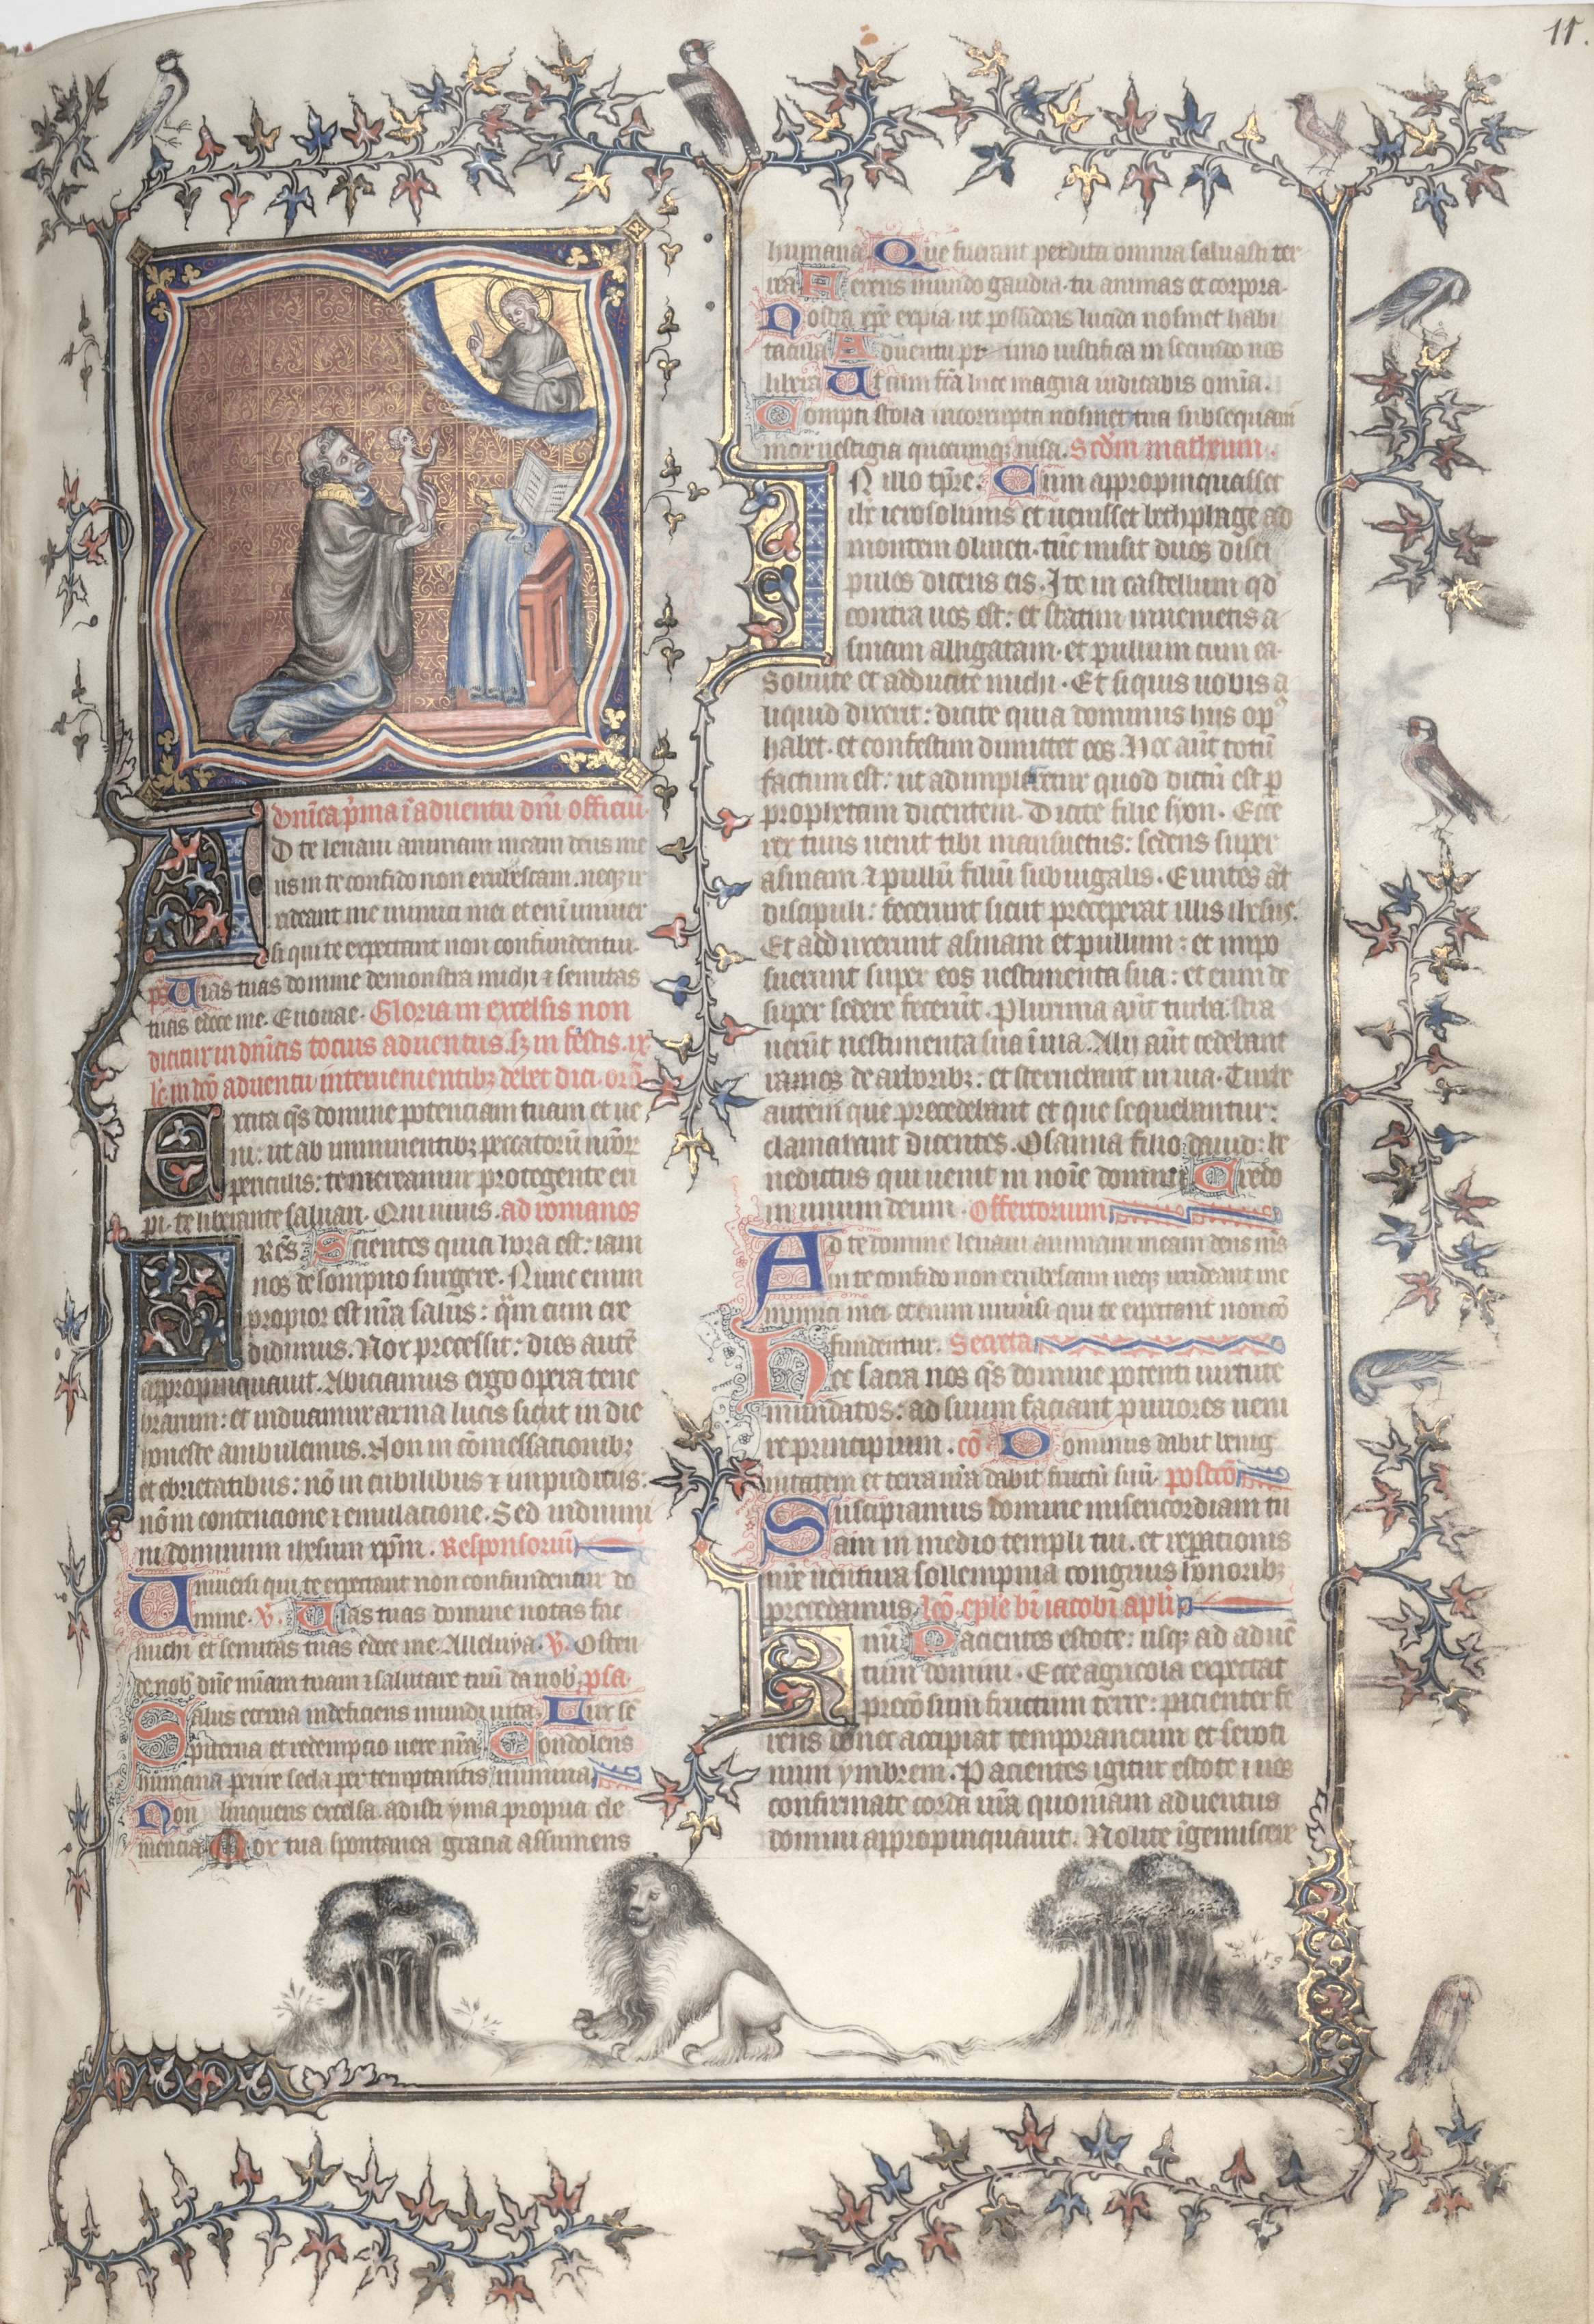 11.
dnica pma i aduentu dni officiu.
AD te leuaui animam meam deus me
us in te confido non erubescam. neq; ir
rideant me inimici mei et eni uniuer
si qui te expectant non confundentur.
ps Uias tuas domine demonstra michi ⁊ semitas
tuas edoce me. Euouae. Gloria in excelsis non
dicitur in dnicis tocius aduentus. sz in festis. ix
lc. in dco aduentu interuenientibz debet dici. oro
Excita qs domine potenciam tuam et ue
ni: ut ab imminentibz peccatoru nror
periculis: te mereamur protegente eri
pi. te liberante saluari. Qui uiuis. ad romanos
FRes. Scientes quia hora est: iam
nos de sompno surgere. Nunc enim
propior est nra salus: qm cum cre
didimus. Nox precessit: dies aute
appropinquauit. Abiciamus ergo opera tene
brarum: et induamur arma lucis sicut in die
honeste ambulemus. Non in comessationibz
et ebrietatibus: no in cubilibus ⁊ impudicitiis:
no in contencione ⁊ emulacione. Sed induimi
ni dominum ihesum xpm. Responsoriu
Uniuersi qui te expectant non confundentur do
mine. v. Uias tuas domine notas fac
michi et semitas tuas edoce me. Alleluya. v. Osten
de nob dne miam tuam ⁊ salutare tuu da nob. psa.
Salus eterna indeficiens mundi uita. Lux se
piterna et redempcio uere nra. Condolens
humana perire secla per temptantis numina
Non linquens excelsa adisti yma propria cle
mencia. Mox tua spontanea gracia assumens
humana. Que fuerant perdita omnia saluasti ter
rea. Ferens mundo gaudia. tu animas et corpora.
Nostra xpe expia ut possideas lucida nosmet habi
tacula. Aduentu primo iustifica in secundo nos
libera. Ut cum fca luce magna iudicabis omia.
Compti stola incorrupta nosmet tua subsequam
mox uestigia quecumq; uisa. Scdm matheum.
IN illo tpre. Cum appropinquasset
ihc ierosolimis et uenisset bethphage ad
montem oliueti. tuc misit duos disci
pulos dicens eis. Ite in castellum qd
contra uos est: et statim inuenietis a
sinam alligatam. et pullum cum ea.
Soluite et adducite michi. Et siquis uobis a
liquid dixerit: dicite quia dominus hiis op
habet. et confestim dimittet eos. Hoc aut totu
factum est: ut adimpleretur quod dictu est p
prophetam dicentem. Dicite filie syon. Ecce
rex tuus uenit tibi mansuetus: sedens super
asinam ⁊ pullu filiu subiugalis. Euntes at
discipuli: fecerunt sicut preceperat illis ihesus.
Et adduxerunt asinam et pullum: et impo
suerunt super eos uestimenta sua: et eum de
super sedere fecerut. Plurima aut turba. stra
uerut uestimenta sua i uia. Alij aut cedebant
ramos de arboribz: et sternebant in uia. Turbe
autem que precedebant et que sequebantur:
clamabant dicentes. Osanna filio dauid: be
nedictus qui uenit in noie domini. Credo
in unum deum. Offertorium
Ad te domine leuaui animam meam deus ms
in te confido non erubescam neq; irrideant me
inimici mei etenim uniusi qui te expectant non co
fundentur. Secreta
Hec sacra nos qs domine potenti uirtute
mundatos: ad suum faciant puriores ueni
re principium. co Dominus dabit benig
nitatem et terra nra dabit fructu suu. postco
Suscipiamus domine misericordiam tu
am in medio templi tui. et reparationis
nre uentura sollempnia congruis honoribz
precedamus. lco eple bi iacobi apli
KRmi Pacientes estote: usq; ad aduen
tum domini. Ecce agricola expectat
preco sum fructum terre: pacienter fe
rens donec accipiat temporaneum et seroti
num ymbrem. Pacientes igitur estote ⁊ uos
confirmate corda ura quoniam aduentus
domini appropinquauit. Nolite igemiscere